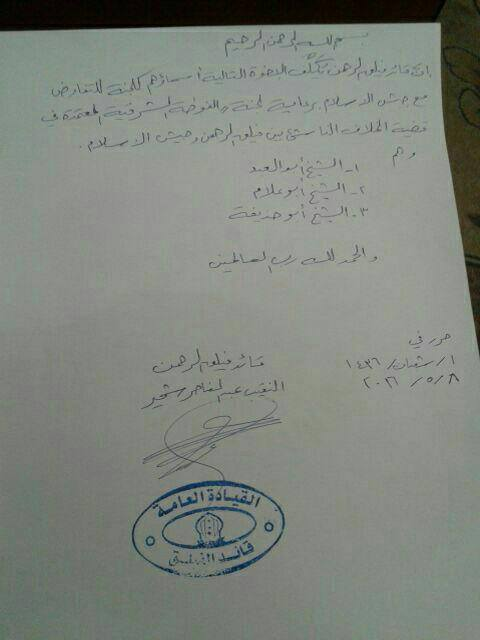 بسم الله الرحمن الرحيم
إن قائد فيلق الرحمن يكلف الاخوة التالية أسماؤهم كلجنة للتفاوض
مع جيش الاسلام برعاية لجنة الغوطة الشرقية المعتمدة في
قضية الخلاف الناشئ بين فيلق الرحمن وجيش الاسلام.
وهم
١- الشيخ أبو العبد
٢- الشيخ أبو علام
٣- الشيخ أبو حذيفة
والحمد لله رب العالمين
حرر في
١/ شعبان/ ١٤٣٦
٨/ ٥/ ٢٠١٦
قائد فيلق الرحمن
النقيب عبد الناصر شمير
القيادة العامة
قائد الفيلق